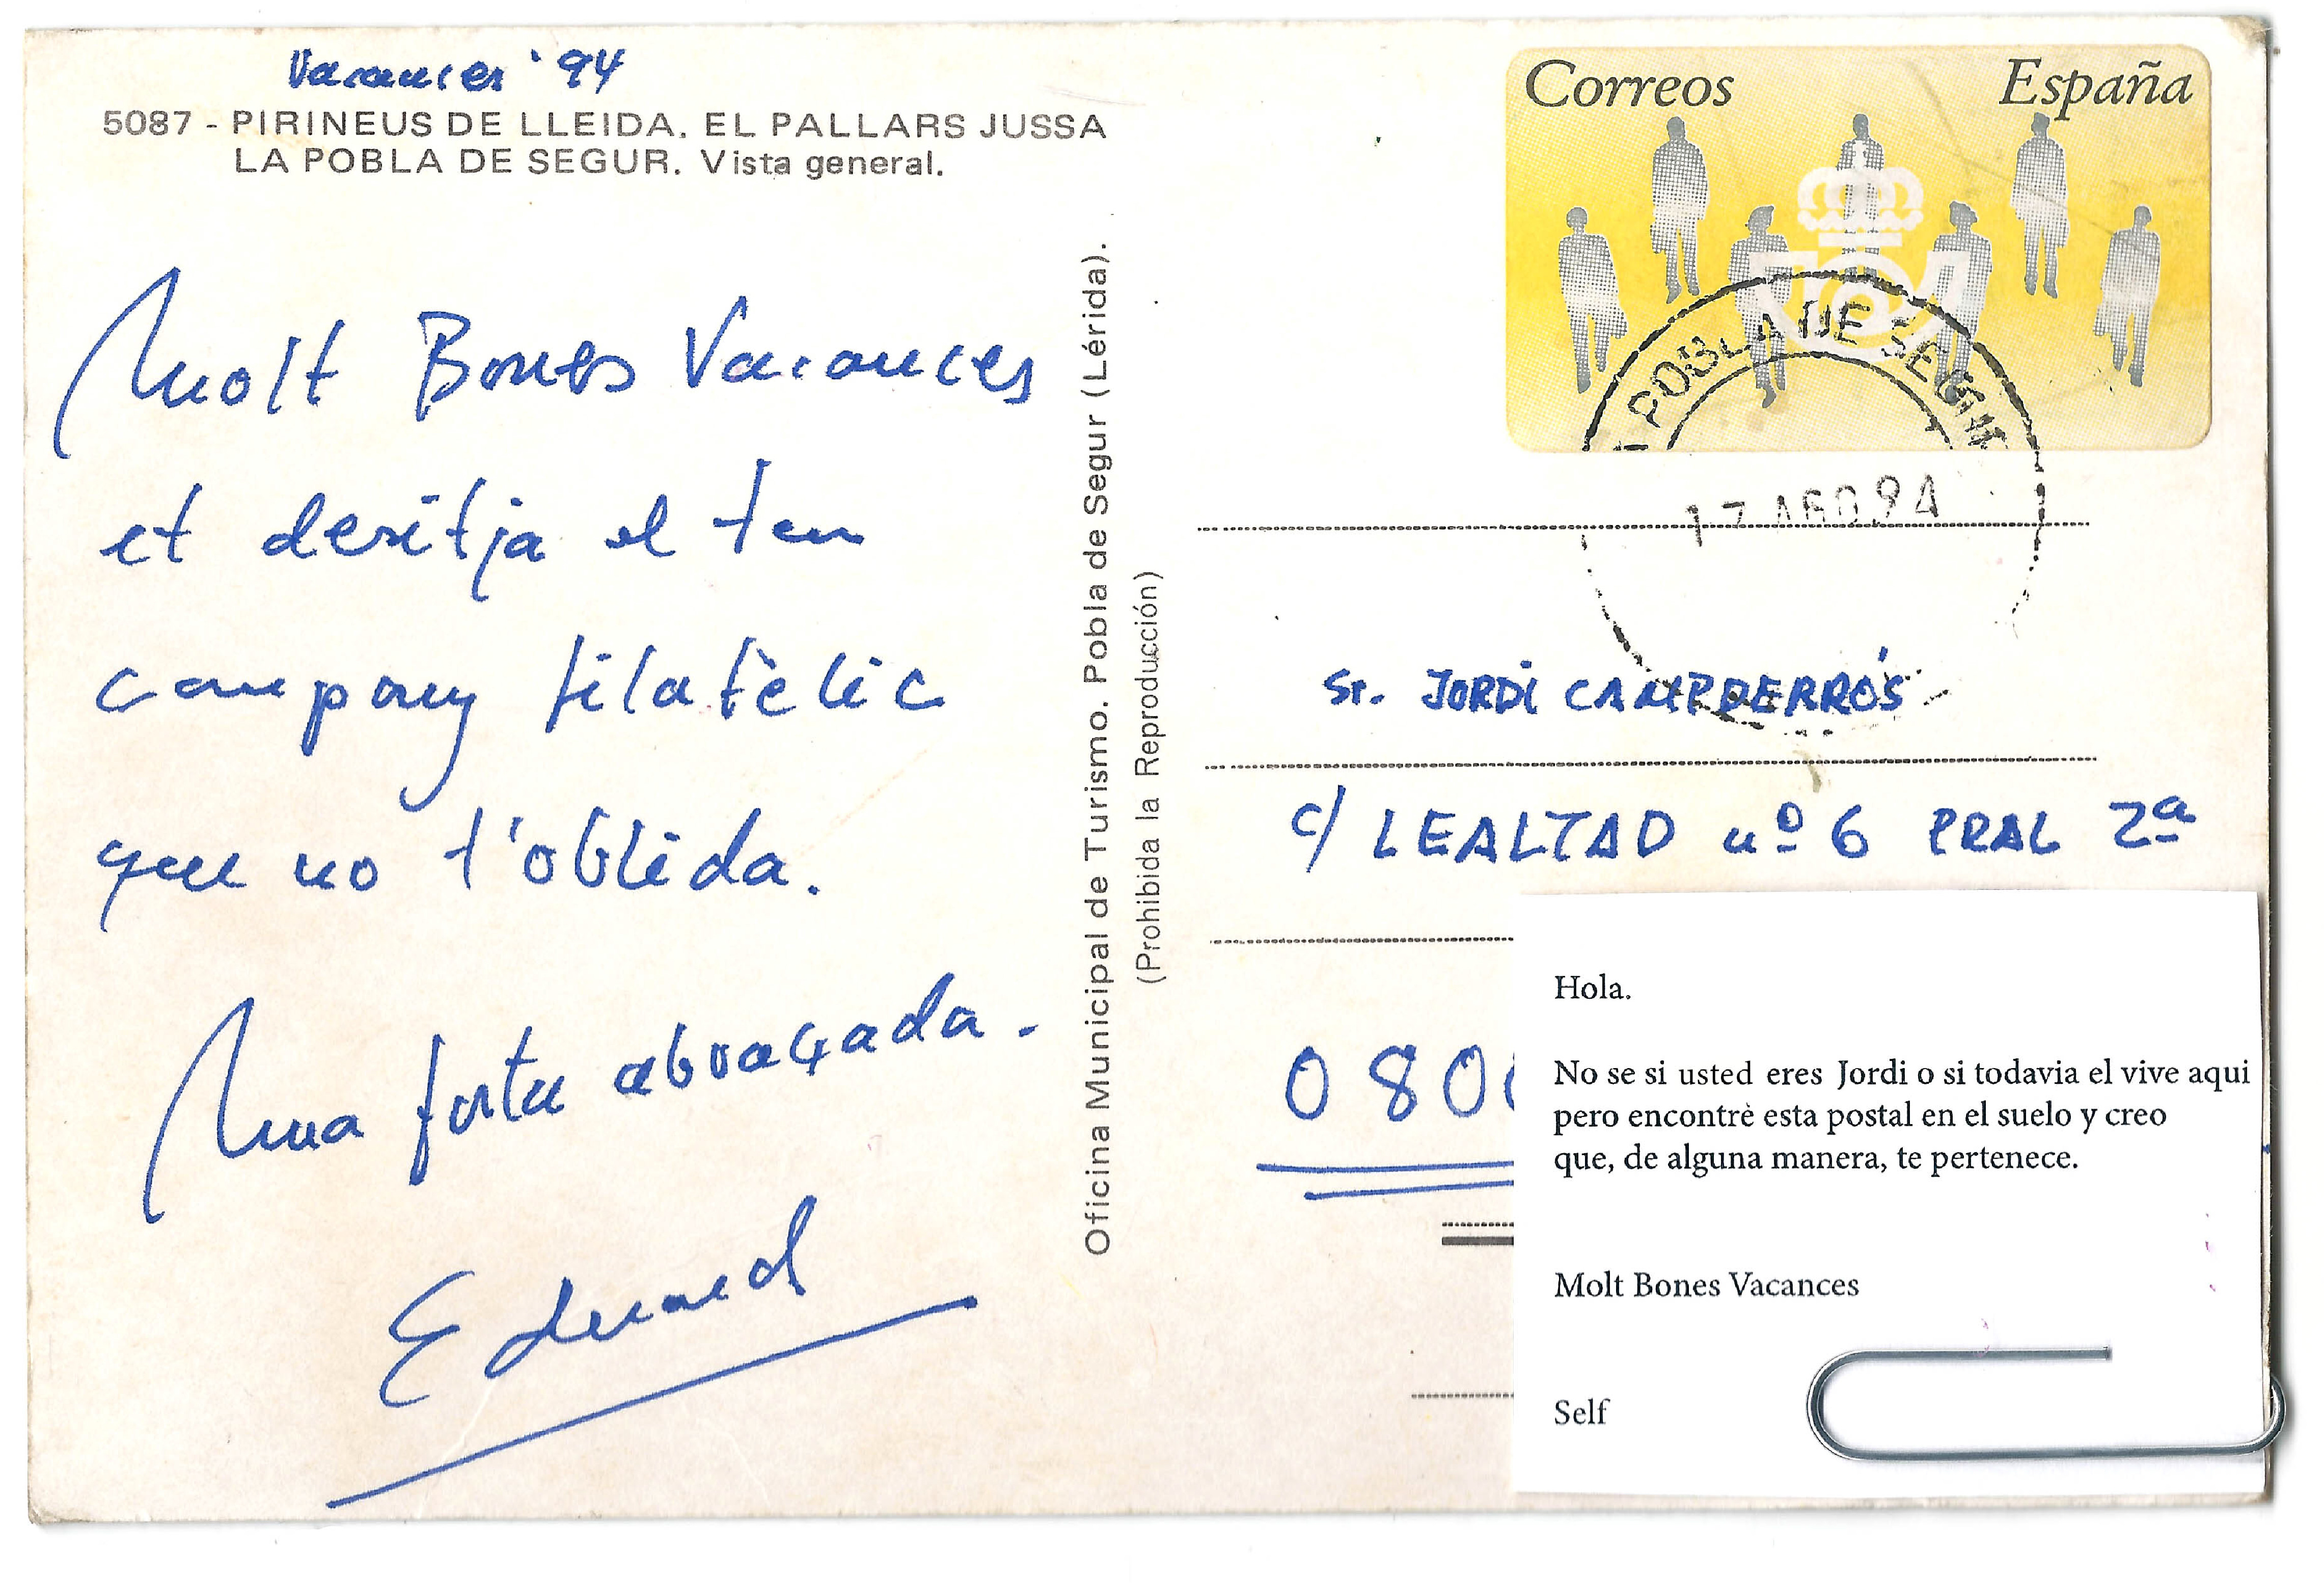 Vacances '94
5087 - PIRINEUS DE LLEIDA. EL PALLARS JUSSA
LA POBLA DE SEGUR. Vista general.
Molt Bones Vacances
et desitja el teu
company filatèlic
que no t'oblida.
Una forta abraçada.
Eduard
Oficina Municipal de Turismo. Pobla de Segur (Lérida).
(Prohibida la Reproducción)
Correos España
POBLA DE SEGUR
17 AGO 94
Sr. JORDI CAMPDERRÓS
c/ LEALTAD nº 6 PRAL 2ª
080
Hola.
No se si usted eres Jordi o si todavia el vive aqui
pero encontrè esta postal en el suelo y creo
que, de alguna manera, te pertenece.
Molt Bones Vacances
Self